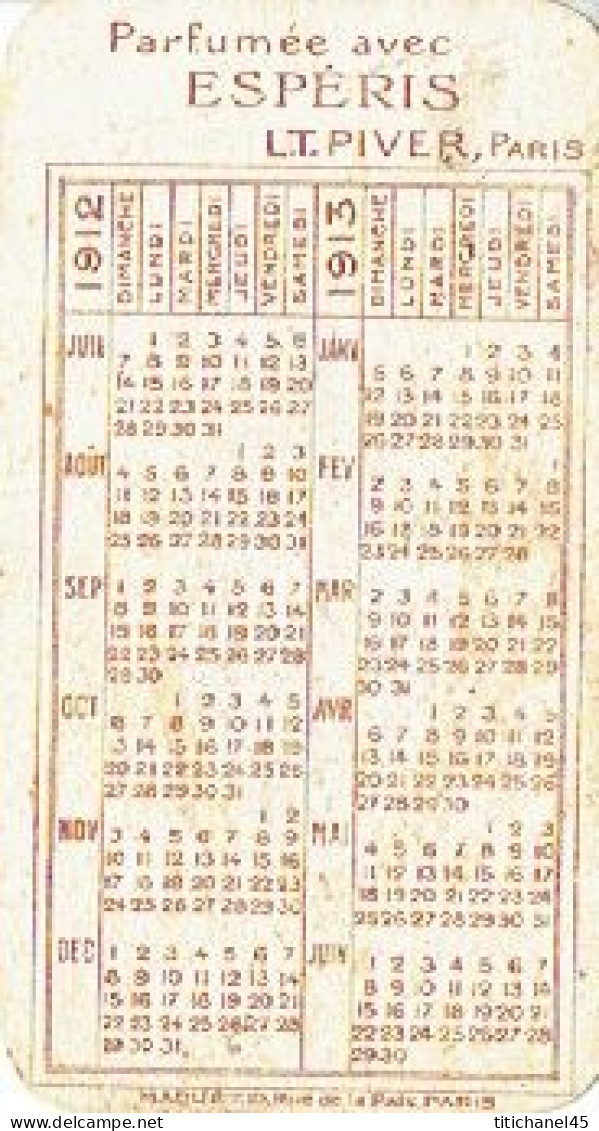 Parfumée avec
ESPÉRIS
L.T. PIVER, PARIS
1912 DIMANCHE LUNDI MARDI MERCREDI JEUDI VENDREDI SAMEDI
JUIL 1 2 3 4 5 6
7 8 9 10 11 12 13
14 15 16 17 18 19 20
21 22 23 24 25 26 27
28 29 30 31
AOUT 1 2 3
4 5 6 7 8 9 10
11 12 13 14 15 16 17
18 19 20 21 22 23 24
25 26 27 28 29 30 31
SEP 1 2 3 4 5 6 7
8 9 10 11 12 13 14
15 16 17 18 19 20 21
22 23 24 25 26 27 28
29 30
OCT 1 2 3 4 5
6 7 8 9 10 11 12
13 14 15 16 17 18 19
20 21 22 23 24 25 26
27 28 29 30 31
NOV 1 2
3 4 5 6 7 8 9
10 11 12 13 14 15 16
17 18 19 20 21 22 23
24 25 26 27 28 29 30
DEC 1 2 3 4 5 6 7
8 9 10 11 12 13 14
15 16 17 18 19 20 21
22 23 24 25 26 27 28
29 30 31
1913 DIMANCHE LUNDI MARDI MERCREDI JEUDI VENDREDI SAMEDI
JANV 1 2 3 4
5 6 7 8 9 10 11
12 13 14 15 16 17 18
19 20 21 22 23 24 25
26 27 28 29 30 31
FEV 1
2 3 4 5 6 7 8
9 10 11 12 13 14 15
16 17 18 19 20 21 22
23 24 25 26 27 28
MAR 2 3 4 5 6 7 8
9 10 11 12 13 14 15
16 17 18 19 20 21 22
23 24 25 26 27 28 29
30 31
AVR 1 2 3 4 5
6 7 8 9 10 11 12
13 14 15 16 17 18 19
20 21 22 23 24 25 26
27 28 29 30
MAI 1 2 3
4 5 6 7 8 9 10
11 12 13 14 15 16 17
18 19 20 21 22 23 24
25 26 27 28 29 30 31
JUIN 1 2 3 4 5 6 7
8 9 10 11 12 13 14
15 16 17 18 19 20 21
22 23 24 25 26 27 28
29 30
Rue de la Paix, PARIS
titichanel45